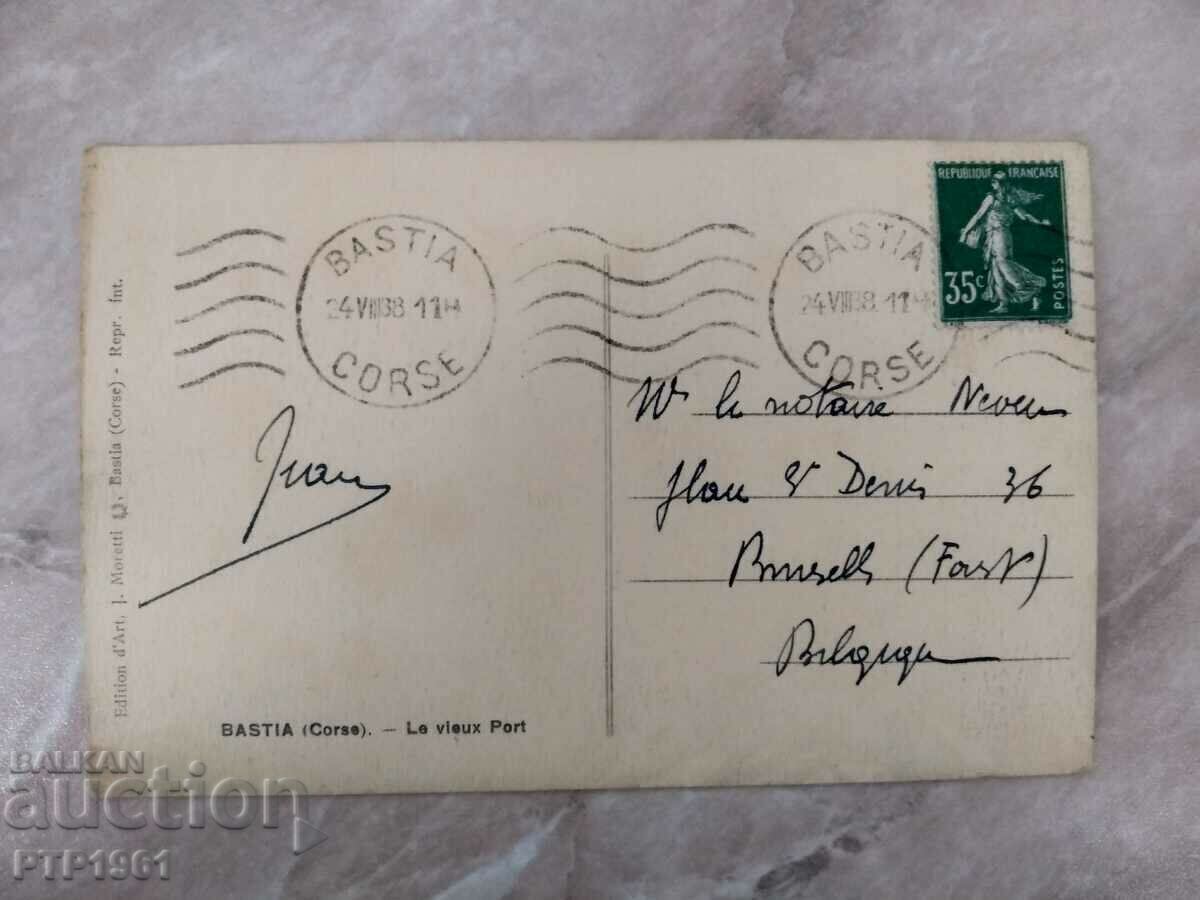 BASTIA
24 VIII 38 11H
CORSE
BASTIA
24 VIII 38 11
CORSE
REPUBLIQUE FRANÇAISE
35c
POSTES
le notaire
Denis 36
Bruxelles (Forest)
Belgique
Jean
Edition d'Art, J. Moretti, Bastia (Corse) - Repr. Int.
BASTIA (Corse). — Le vieux Port
BALKAN
auction
PTP1961